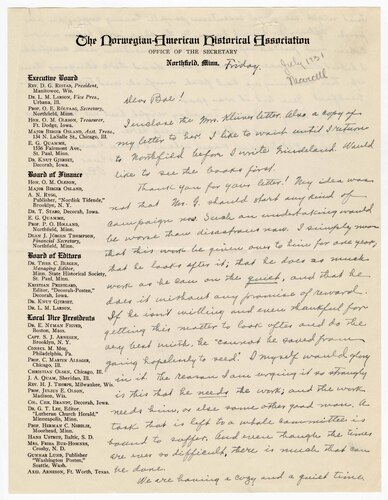 The Norwegian-American Historical Association
OFFICE OF THE SECRETARY
Northfield, Minn. Friday
July 1931
Executive Board
REV. D. G. RISTAD, President,
Manitowoc, Wis.
DR. L. M. LARSON, Vice Pres.,
Urbana, Ill.
PROF. O. E. RÖLVAAG, Secretary,
Northfield, Minn.
HON. O. M. OLESON, Treasurer,
Ft. Dodge, Iowa
MAJOR BIRGER OSLAND, Asst. Treas.,
134 N. LaSalle St., Chicago, Ill.
E. G. QUAMME,
1536 Fairmont Ave.,
St. Paul, Minn.
DR. KNUT GJERSET,
Decorah, Iowa.
Board of Finance
HON. O. M. OLESON,
MAJOR BIRGER OSLAND,
A. N. RYGG,
Publisher, "Nordisk Tidende,"
Brooklyn, N. Y.
DR. T. STABO, Decorah, Iowa.
E. G. QUAMME,
St. Paul, Minn.
PROF. P. O. HOLLAND,
Northfield, Minn.
DEAN J. JÖRGEN THOMPSON,
Financial Secretary,
Northfield, Minn.
Board of Editors
DR. THEO. C. BLEGEN,
Managing Editor,
Minn. State Historical Society,
St. Paul, Minn.
KRISTIAN PRESTGARD,
Editor, "Decorah-Posten,"
Decorah, Iowa.
DR. KNUT GJERSET
DR. L. M. LARSON.
Local Vice Presidents
DR. E. NYMAN FIGVED,
Boston, Mass.
CAPT. S. J. ARNESEN,
Brooklyn, N. Y.
CONSUL M. MOE,
Philadelphia, Pa.
PROF. C. MARTIN ALSAGER,
Chicago, Ill.
CHRISTIAN OLSEN, Chicago, Ill.
J. A. QUAM, Sheridan, Ill.
REV. H. J. THORPE, Milwaukee, Wis.
PROF. JULIUS E. OLSON,
Madison, Wis.
COL. CHR. BRANDT, Decorah, Iowa.
DR. G. T. LEE, Editor,
"Lutheran Church Herald,"
Minneapolis, Minn.
PROF. HERMAN C. NORDLIE,
Moorhead, Minn.
HANS USTRUD, Baltic, S. D.
MRS. FRIDA BUE-HOMNES,
Crosby, N. D.
GUNNAR LUND, Publisher
"Washington Posten,"
Seattle, Wash.
AXEL ARNESON, Ft. Worth, Texas.
Dear Boe!
I inclose the Mrs. letter. Also a copy of
my letter to her. I like to wait until I return
to Northfield before I write Grindeland. Would
like to see the books first.
Thank you for your letter! My idea was
not that Mr. G. should start any kind of
campaign. Such an undertaking would
be worse than disastrous now. I simply mean
that this work be given over to him for one year,
that he looks after it; that he does as much
work as he can on the quiet, and that he
does it without any promise of reward.
If he isn't willing and even thankful for
getting this matter to look after and do the
very best with, he 'cannot be saved from
going hopelessly to seed'. I myself would glory
in it. The reason I am urging it so strongly
is this that he needs the work; and the work
needs him, or else some other good man. A
task that is left to a whole committee is
bound to suffer. And even though the times
are ever so difficult, there is much that can
be done.
We are having a cozy and a quiet time,